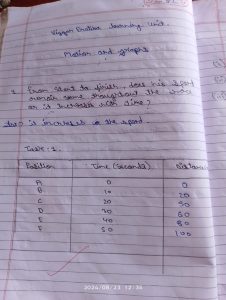 learning unit.
Motion and graphs
1. From start to finish, does his speed
remain same throughout the
or it increases with time?
Ans) it increases the speed.
Table: 1.
Position Time (seconds) Distance
A 0 0
B 10 20
C 20 50
D 30 60
E 40 80
F 50 100
2024/08/23 12:36